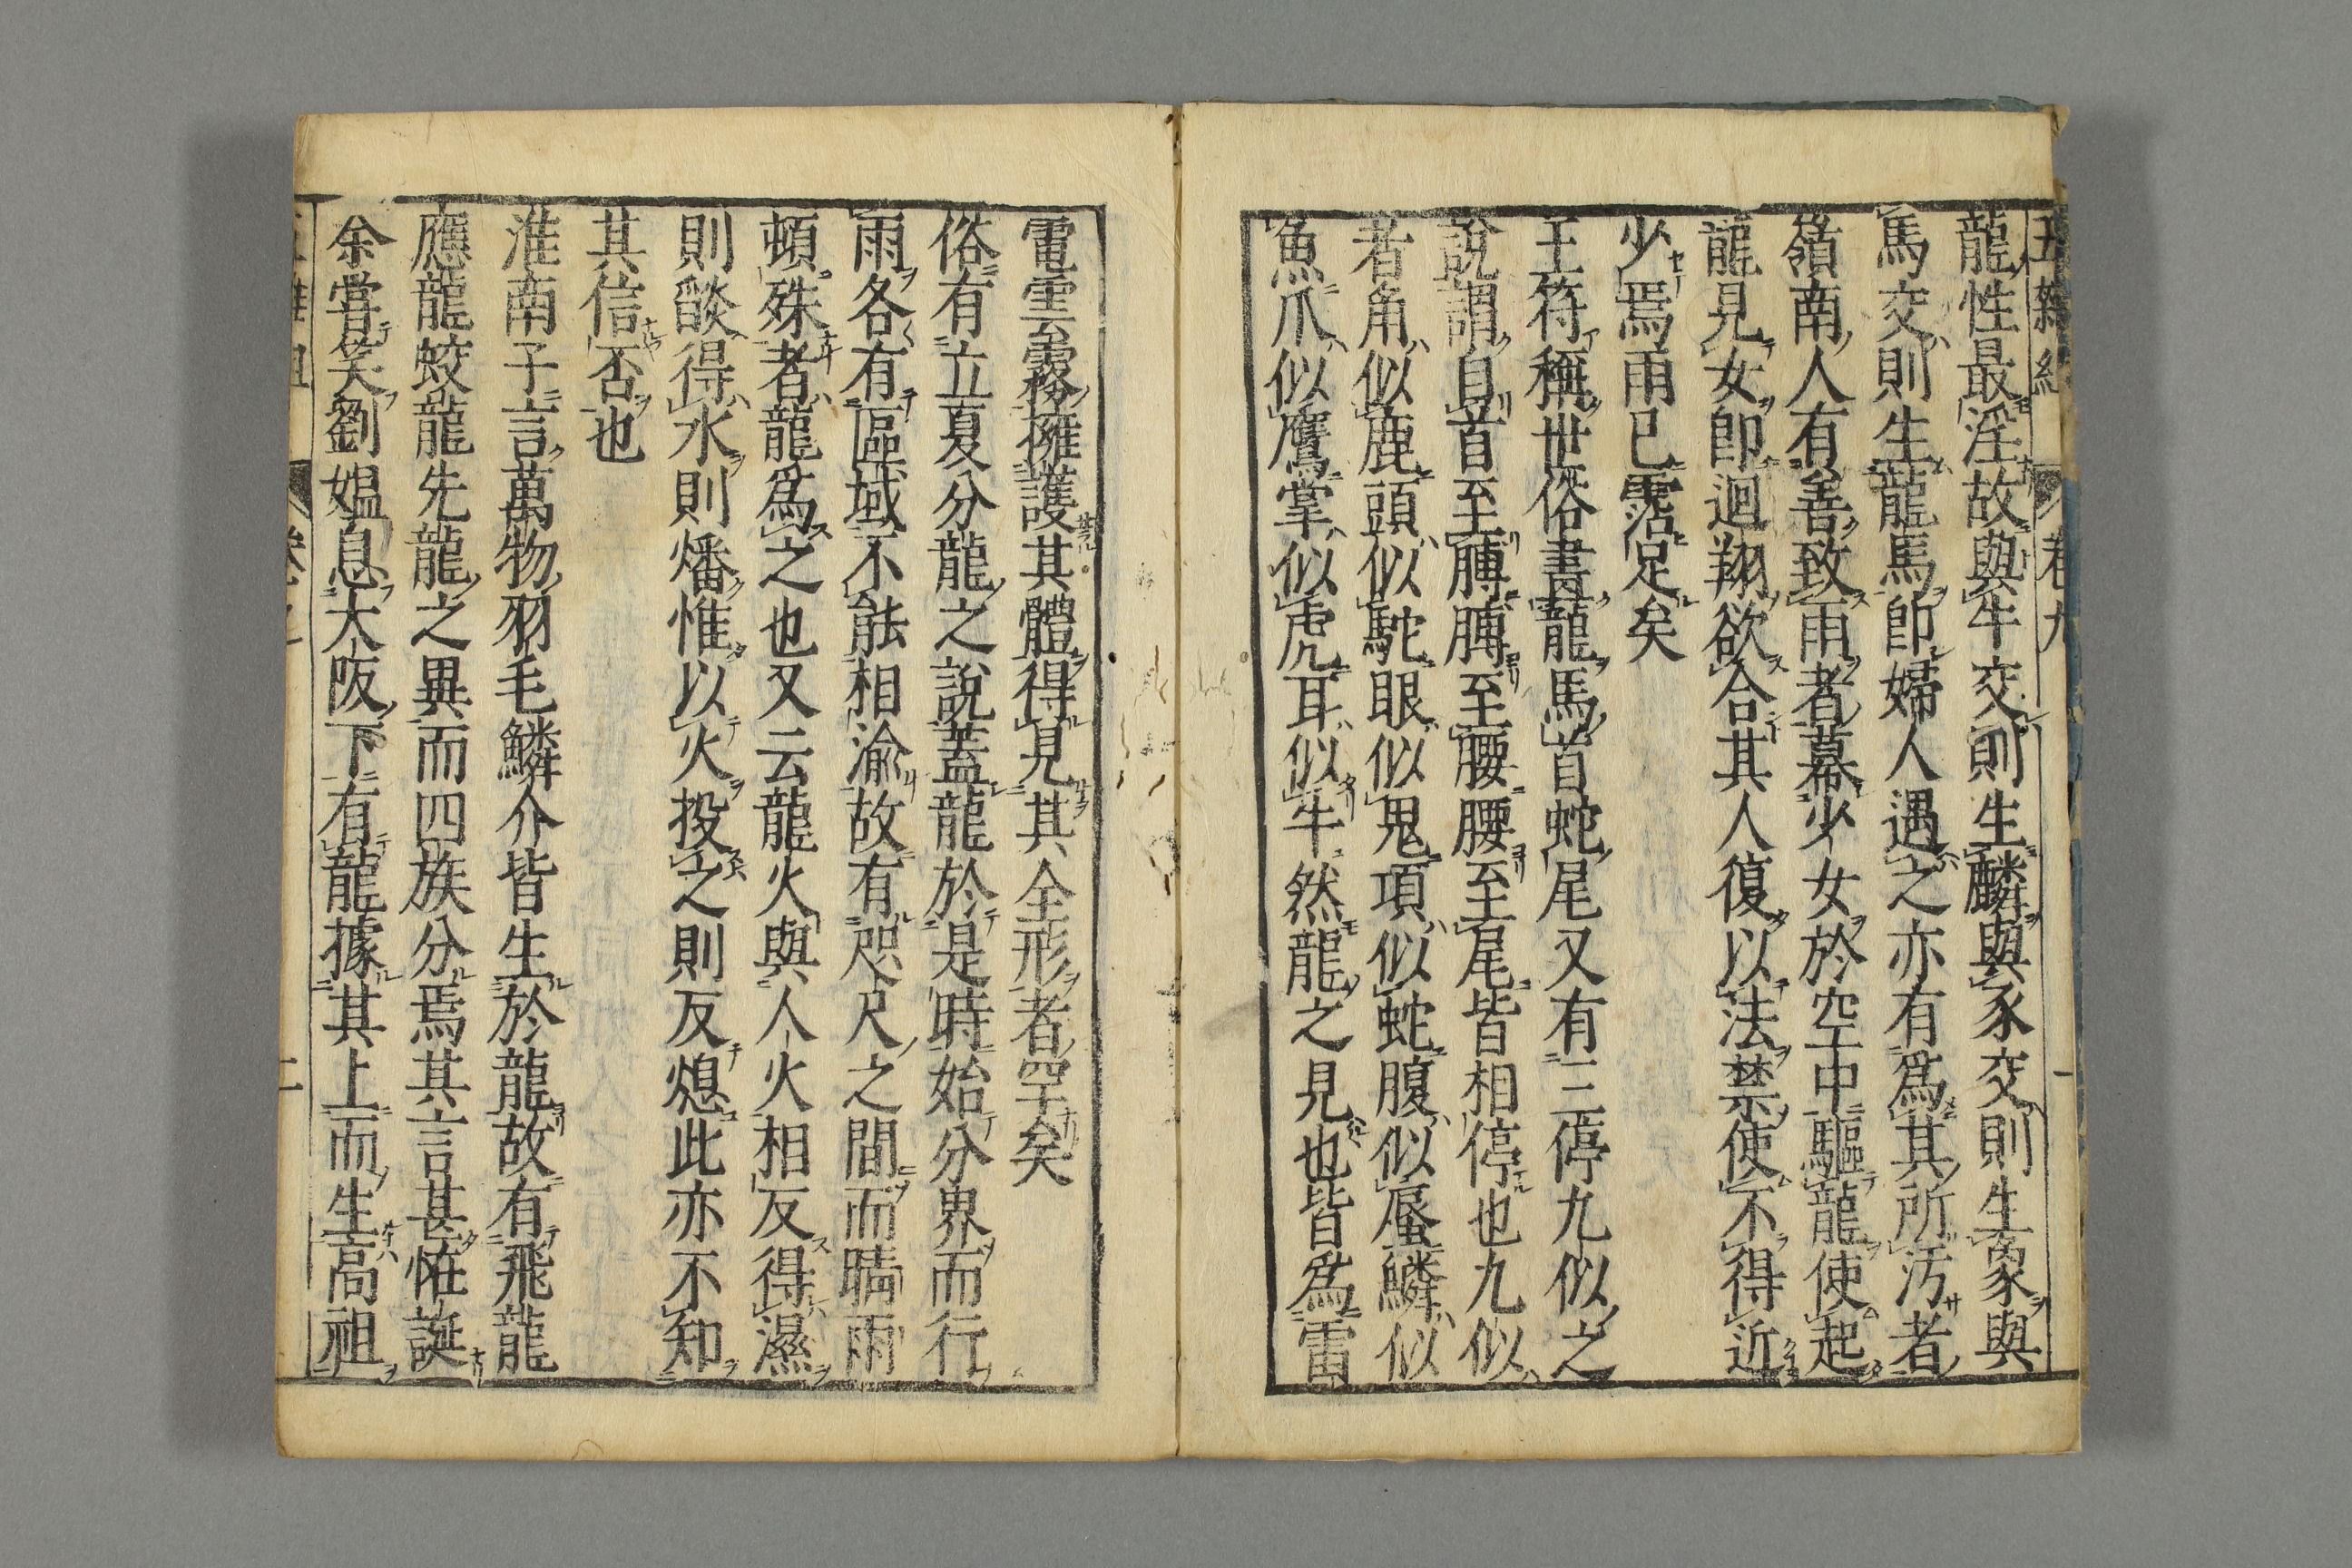 五雜組 卷九 一
龍性最淫故與牛交則生麟與豕交則生象與
馬交則生龍馬卽婦人遇之亦有爲其所汚者
嶺南人有善致雨者幕少女於空中驅龍使起
龍見女卽迴翔欲合其人復以法禁使不得近
少焉雨已霑足矣
王符稱世俗畫龍馬首蛇尾又有三停九似之
說謂自首至膊膊至腰腰至尾皆相停也九似
者角似鹿頭似駝眼似鬼項似蛇腹似蜃鱗似
魚爪似鷹掌似虎耳似牛然龍之見也皆爲雷
電雲霧擁護其體得見其全形者罕矣
俗有立夏分龍之說蓋龍於是時始分界而行
雨各有區域不能相渝故有咫尺之間而晴雨
頓殊者龍爲之也又云龍火與人火相反得濕
則燄得水則燔惟以火投之則反熄此亦不知
其信否也
淮南子言萬物羽毛鱗介皆生於龍故有飛龍
應龍蛟龍先龍之異而四族分焉其言甚恠誕
余嘗笑劉媼息大阪下有龍據其上而生高祖